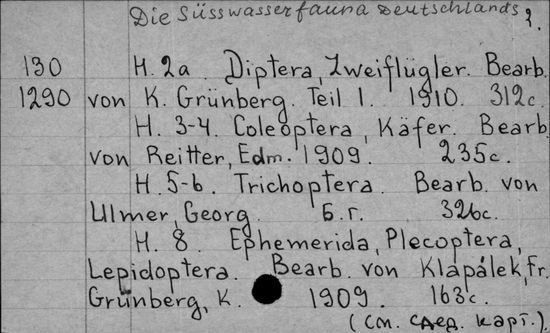 Die Süsswasserfauna Deutschlands 2.
130 H. 2a. Diptera, Zweiflügler. Bearb.
1290 von K. Grünberg. Teil 1. 1910. 312c.
H. 3-4. Coleoptera, Käfer. Bearb.
von Reitter, Edm. 1909. 235c.
H. 5-6. Trichoptera. Bearb. von
Ulmer, Georg. Б.г. 326c.
H. 8. Ephemerida, Plecoptera,
Lepidoptera. Bearb. von Klapálek, Fr.
Grünberg, K. 1909. 163c.
(см. след. карт.)